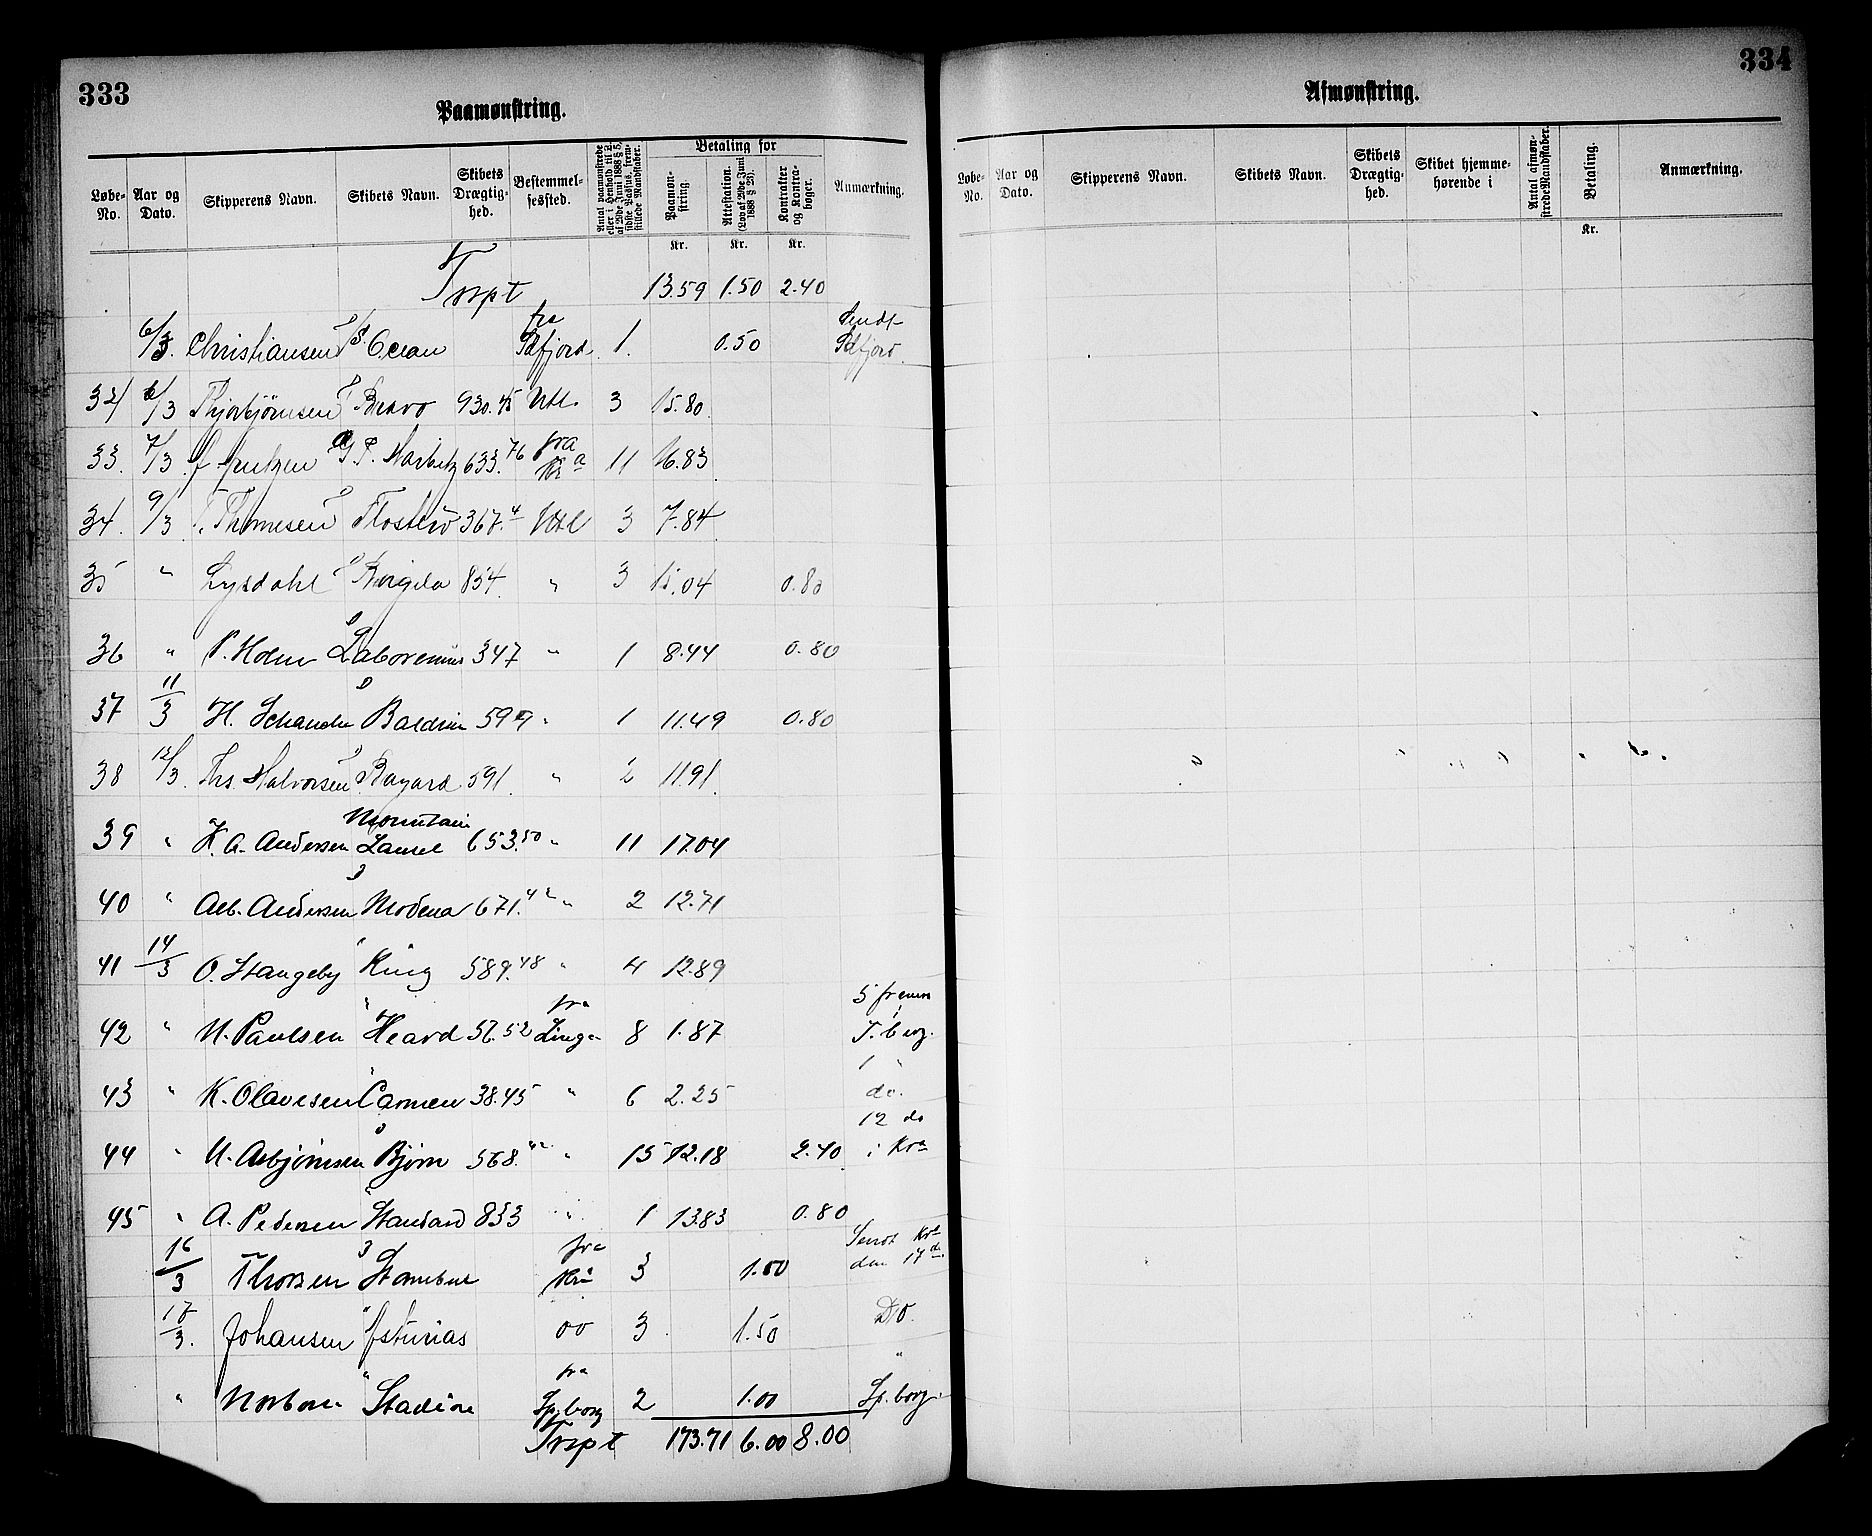 333
Paamønstring.
Løbe-No. Aar og Dato. Skipperens Navn. Skibets Navn. Skibets Drægtighed. Bestemmelsessted. Antal paamønstrede eller i Henhold til L. af 29de Juni 1888 § 5, sidste Passus, fremstillede Mandskaber. Betaling for Paamønstring. Attestation. (Lov af 29de Juni 1888 § 23). Kontrakter og Kontrabøger. Anmærkning.
Kr. Kr. Kr.
Trspt 13.59 1.50 2.40
6/3. Christiansen Ocean fra 1. 0.50 Sendt
32 6/3 Thjorbjörnsen Bravo 930.45 Utl. 3 15.80
33. 7/3 G. P. Harbitz 633.76 fra Kra 11 16.83
34. 9/3 T. Thomesen 367.4 Utl 3 7.84
35 " Lysdahl 854. " 3 15.04 0.80
36 " P. Holm Laboremus 347 " 1 8.44 0.80
37 11/3 H. 599 " 1 11.49 0.80
38 12/3. Ths. Halvorsen Bayard 591. " 2 11.91.
39 " H. A. Andersen Mountain Laurel 653.50 " 11 17.04
40 " Alb. Andersen Modena 671.42 " 2 12.71
41 14/3 O. Stangeby King 589.48 " 4 12.89
42 " N. Paulsen Heard 57.52 fra 8 1.87 5 frem T.berg.
43 " K. Olavesen Carmen 38.45 " 6 2.25 1 " do.
44 " N. Asbjörnsen Björn 568. " 15 12.18 2.40 12 do i Kra
45 " A. Pedersen Standard 833 " 1 13.83 0.80
16/3 Thorsen fra Kra 3 1.50 Sendt Kra den 17de.
17/3. Johansen Asturias do 3. 1.50 Do.
" fra Sp.borg 2 1.00 " Sp.borg.
Trspt 173.71 6.00 8.00
334
Afmønstring.
Løbe-No. Aar og Dato. Skipperens Navn. Skibets Navn. Skibets Drægtighed. Skibet hjemmehørende i Antal afmønstrede Mandskaber. Betaling. Anmærkning.
Kr.